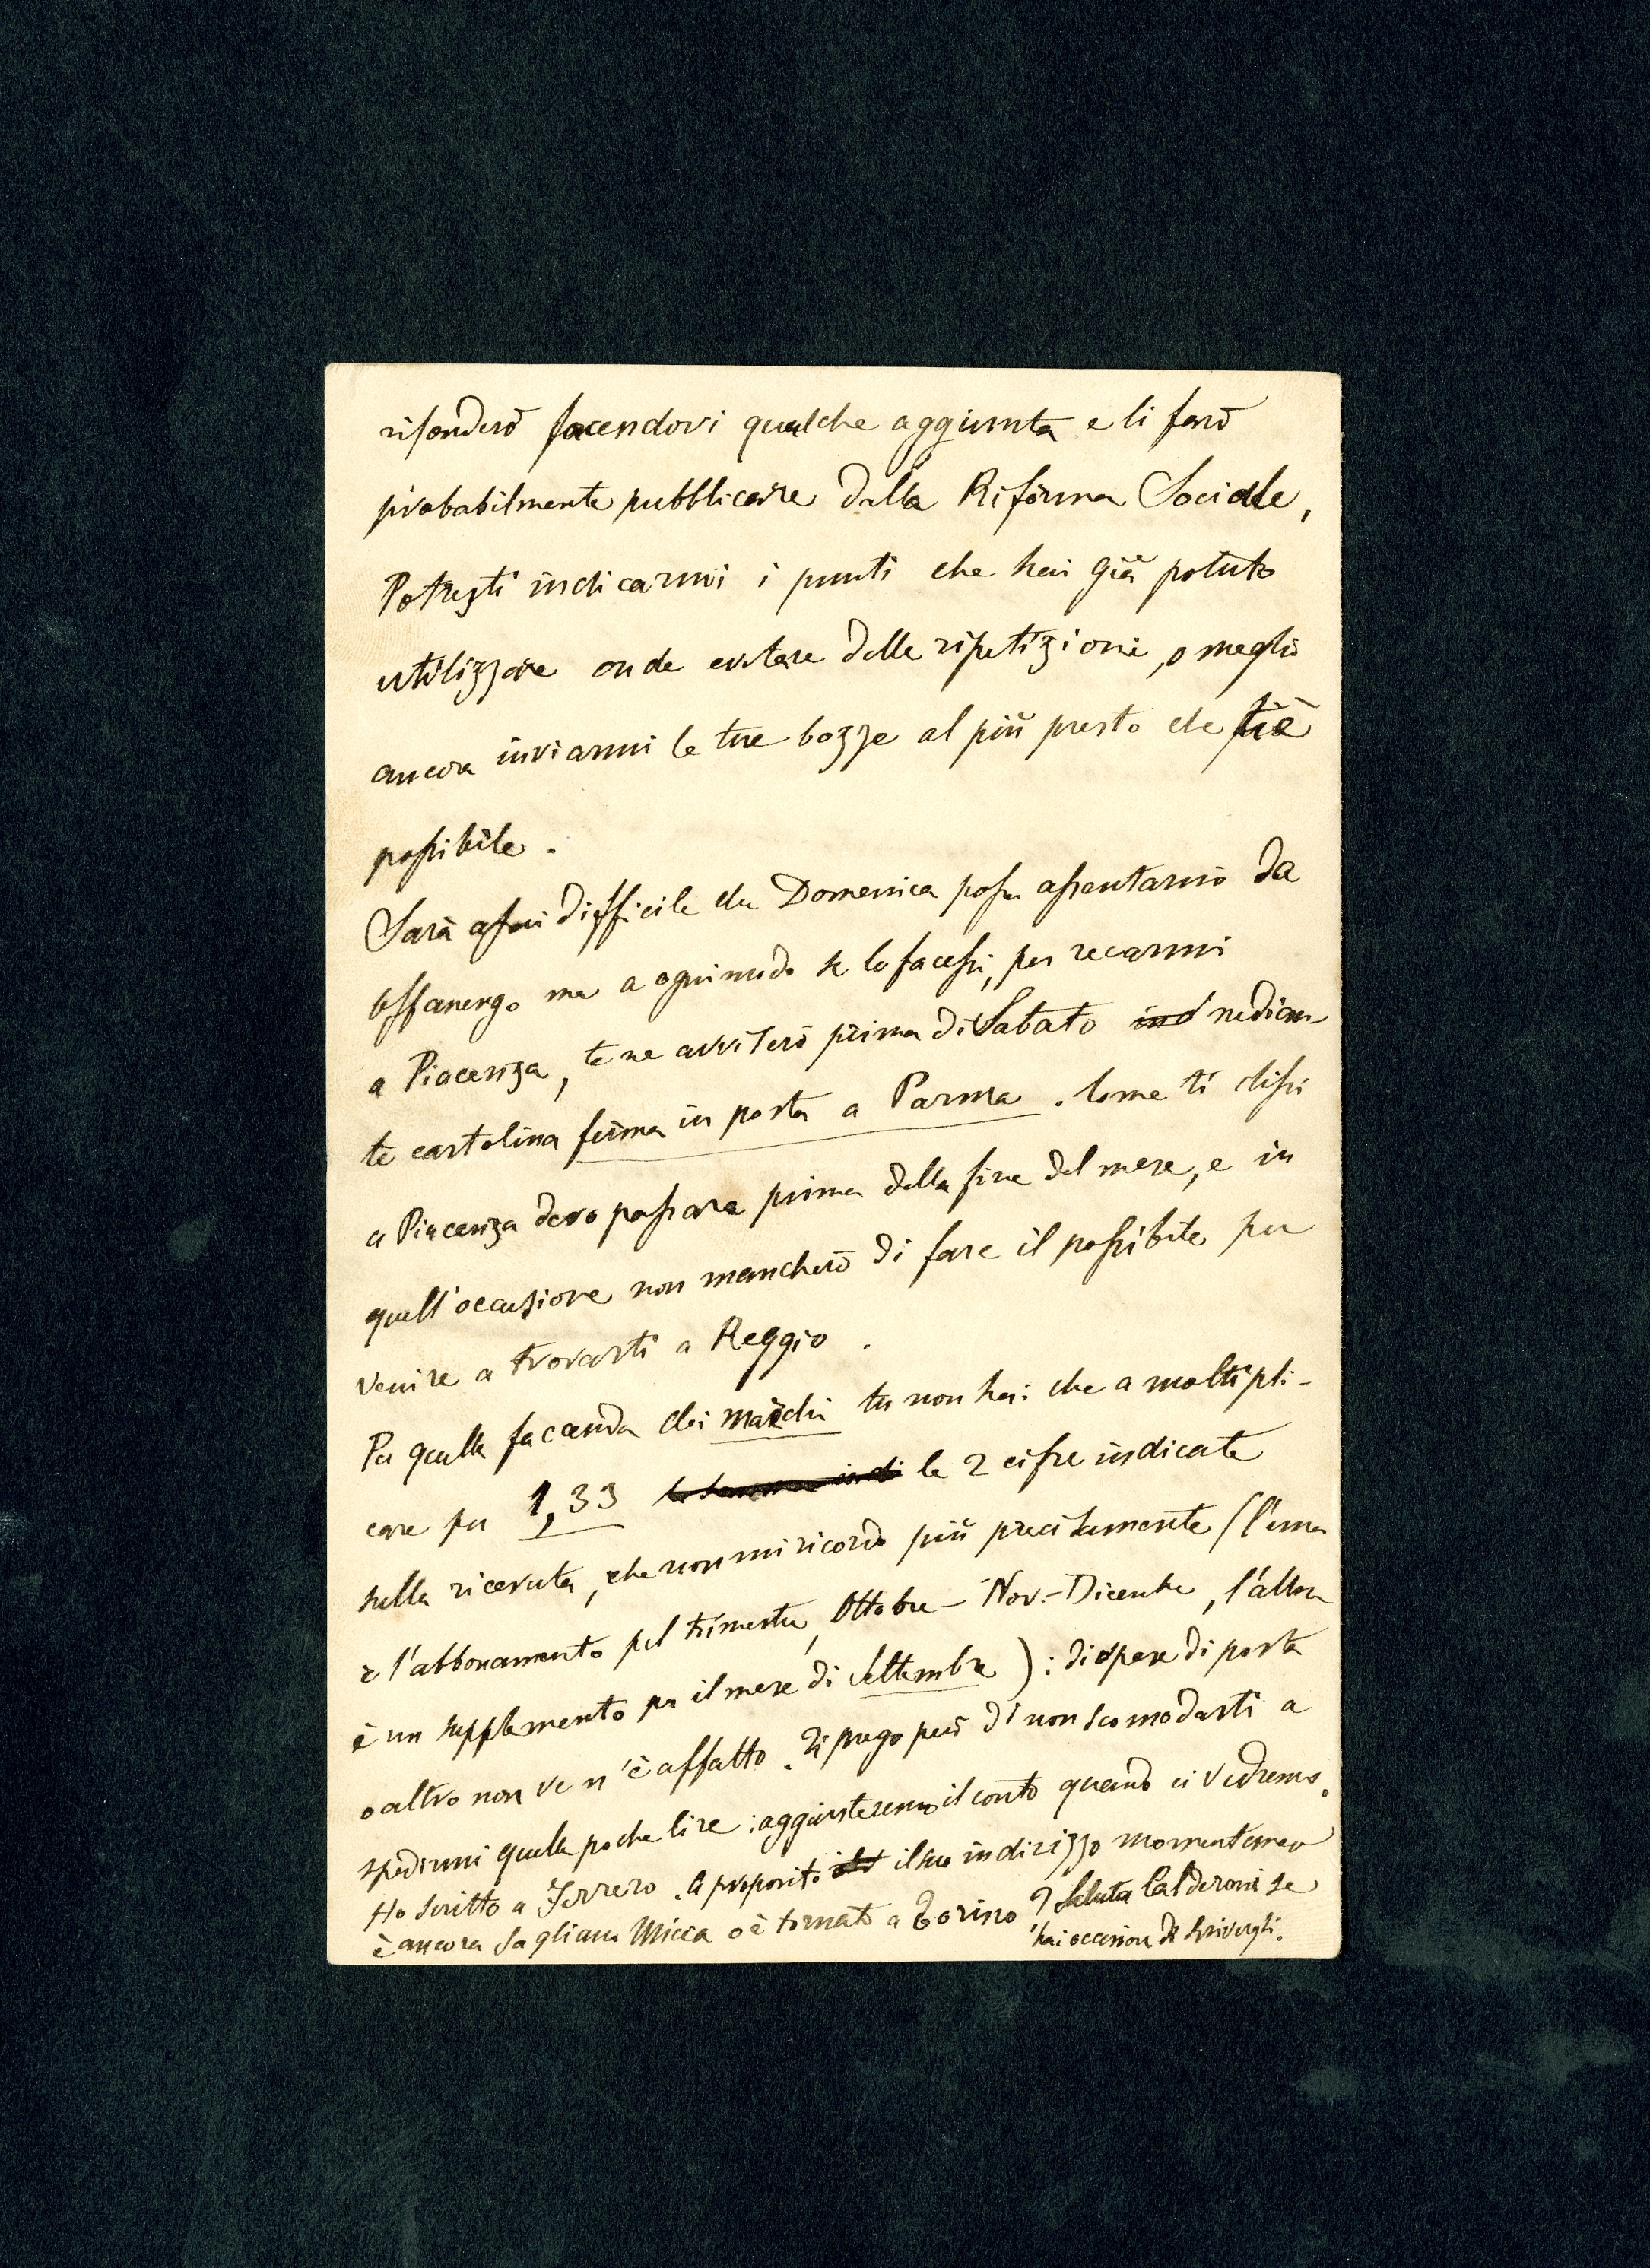 rifonderò facendovi qualche aggiunta e li farò
probabilmente pubblicare dalla Riforma Sociale,
Potresti indicarmi i punti che hai già potuto
utilizzare onde evitare delle ripetizioni, o meglio
ancora inviarmi le tue bozze al più presto che ti è
possibile.
Sarà assai difficile che Domenica possa assentarmi da
Offanengo ma a ogni modo se lo facessi, per recarmi
a Piacenza, te ne avviserò prima di Sabato median
te cartolina ferma in posta a Parma. Come ti dissi
a Piacenza devo passare prima della fine del mese, e in
quell'occasione non mancherò di fare il possibile per
venire a trovarti a Reggio.
Per quella faccenda dei marchi tu non hai che a moltipli-
care per 1,33 le 2 cifre indicate
sulla ricevuta, che non mi ricordo più precisamente (l'una
è l'abbonamento pel trimestre, Ottobre - Nov.- Dicembre, l'altra
è un supplemento per il mese di Settembre): di spese di posta
o altro non ve n'è affatto. Ti prego però di non scomodarti a
spedirmi quelle poche lire: aggiusteremo il conto quando ci vedremo.
Ho scritto a Ferrero. A proposito il suo indirizzo momentaneo
è ancora Sagliano Micca o è tornato a Torino? Saluta Calderoni se
hai occasione di scrivergli.